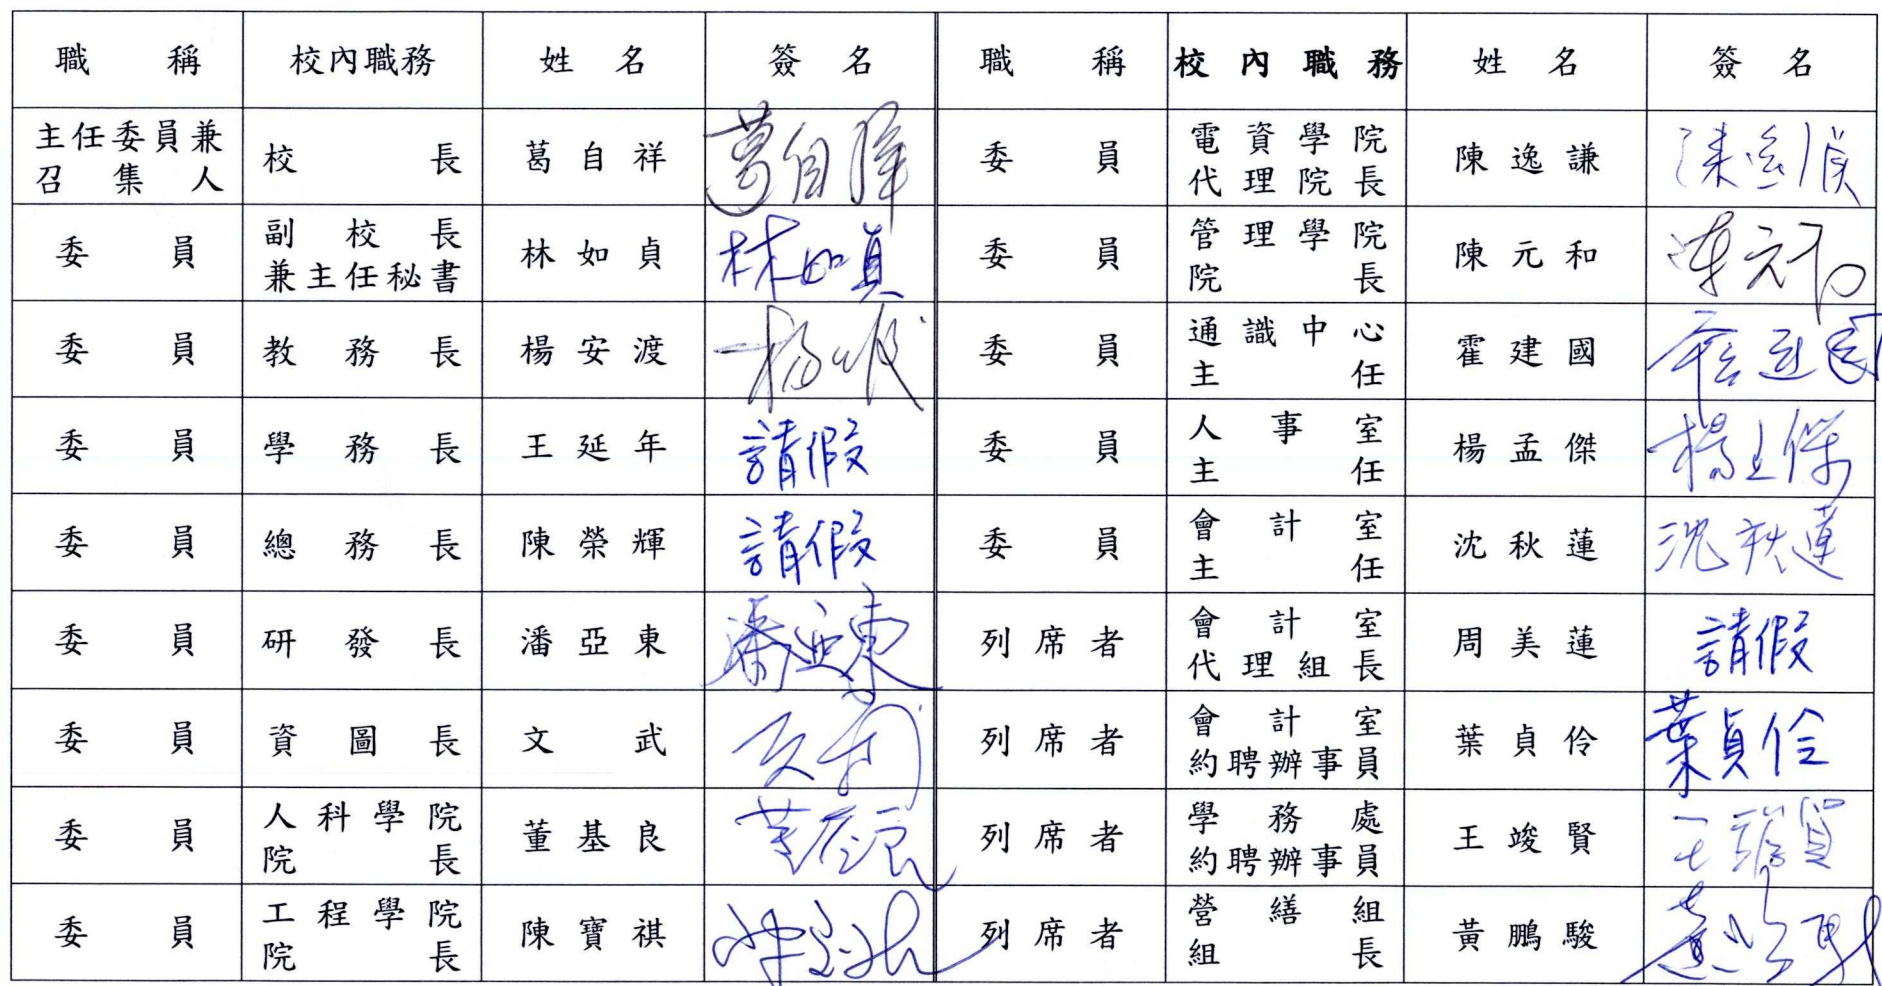 職稱 校內職務 姓名 簽名 職稱 校內職務 姓名 簽名
主任委員兼召集人 校長 葛自祥 葛自祥 委員 電資學院代理院長 陳逸謙 陳逸謙
委員 副校長兼主任秘書 林如貞 林如貞 委員 管理學院院長 陳元和 陳元和
委員 教務長 楊安渡 委員 通識中心主任 霍建國 霍建國
委員 學務長 王延年 請假 委員 人事室主任 楊孟傑 楊孟傑
委員 總務長 陳榮輝 請假 委員 會計室主任 沈秋蓮 沈秋蓮
委員 研發長 潘亞東 潘亞東 列席者 會計室代理組長 周美蓮 請假
委員 資圖長 文武 列席者 會計室約聘辦事員 葉貞伶 葉貞伶
委員 人科學院院長 董基良 列席者 學務處約聘辦事員 王竣賢 王竣賢
委員 工程學院院長 陳寶祺 列席者 營繕組組長 黃鵬駿